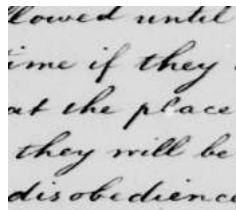 llowed until
ime if they
at the place
they will be
disobedience